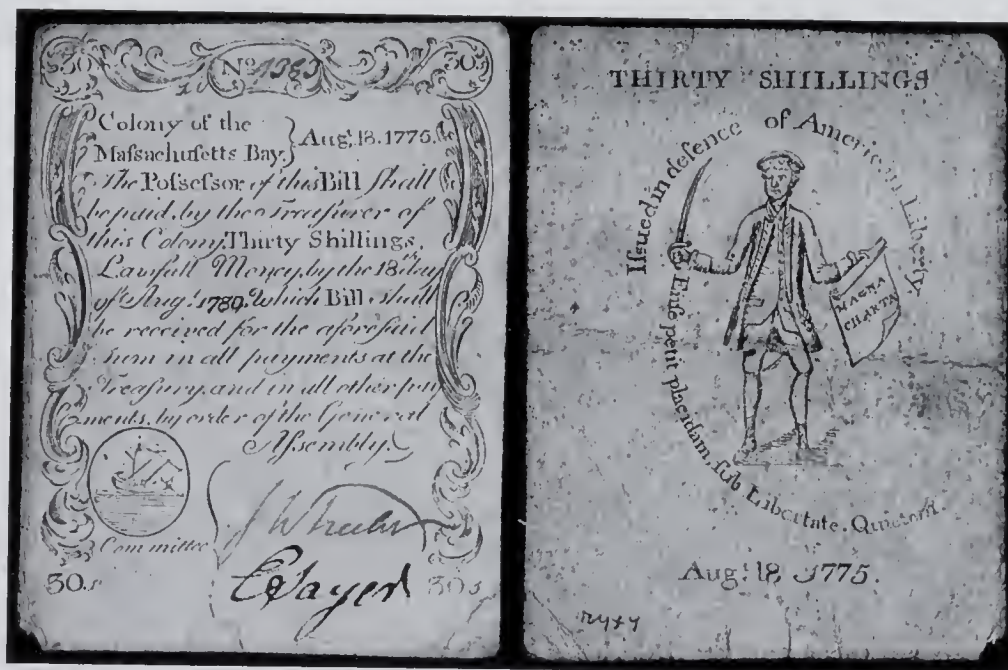 30s No 1383 30s
Colony of the
Maſsachuſetts Bay. } Aug.t 18. 1775.
The Poſseſsor of this Bill ſhall
be paid, by the Treaſurer of
this Colony, Thirty Shillings,
Lawfull Money, by the 18.th day
of Aug.t 1780. Which Bill ſhall
be received for the aforeſaid
ſum in all payments at the
Treaſury and in all other pay
ments, by order of the General
Aſsembly.
Committee
30.s 30.s
THIRTY SHILLINGS
Iſsued in defence of American Liberty
MAGNA
CHARTA
Enſe petit placidam, ſub Libertate, Quietem.
Aug.t 18. 1775.